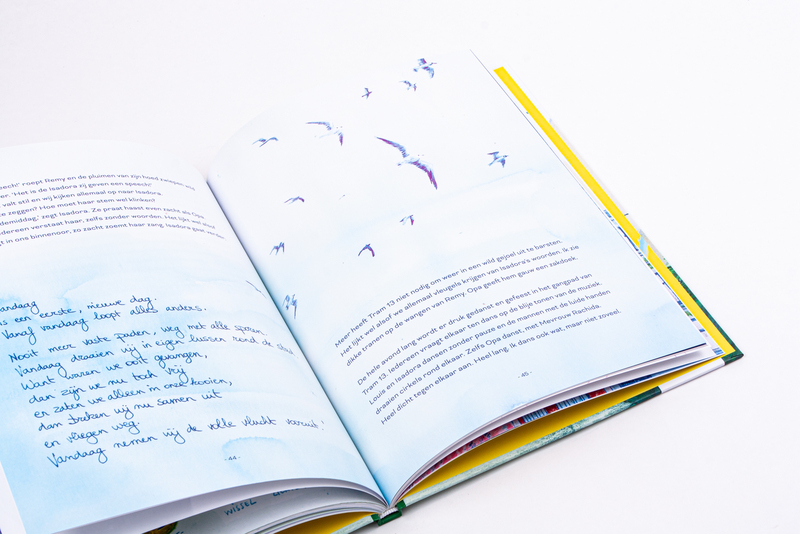 speech!' roept Remy en de pluimen van zijn hoed zwiepen
'Het is de Isadora zij geven een speech!'
valt stil en wij kijken allemaal op naar Isadora.
te zeggen? Hoe moet haar stem wel klinken?
zegt Isadora. Ze praat haast even zacht als Opa
Iedereen verstaat haar, zelfs zonder woorden. Het lijkt wel
in ons binnenoor, zo zacht zoemt haar zang. Isadora
Vandaag
is een eerste, nieuwe dag.
Vanaf vandaag loopt alles anders.
Nooit meer vaste paden, weg met alle sporen
Vandaag draaien wij in eigen lussen rond de
Want waren we ooit gevangen,
dan zijn we nu toch vrij
en zaten we alleen in onze kooien,
dan breken wij nu samen uit
en vliegen weg.
Vandaag nemen wij de volle vlucht vooruit!
- 44 -
WISSEL
Meer heeft Tram 13 niet nodig om weer in een wild gejoel uit te barsten.
Het lijkt wel alsof we allemaal vleugels krijgen van Isadora's woorden. Ik zie
dikke tranen op de wangen van Remy. Opa geeft hem gauw een zakdoek.
De hele avond lang wordt er druk gedanst en gefeest in het gangpad van
Tram 13. Iedereen vraagt elkaar ten dans op de blije tonen van de muziek.
Louis en Isadora dansen zonder pauze en de mannen met de luide handen
draaien cirkels rond elkaar. Zelfs Opa danst, met Mevrouw Rachida.
Heel dicht tegen elkaar aan. Heel lang. Ik dans ook wat, maar niet zoveel.
- 45 -